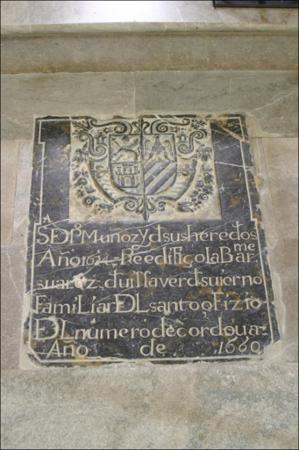 SᴬDPº Muñoz y d sus heredos
Año 1624 Reedificola Barᵐᵉ
suarez d
FamiLiar DL santo ofizio
DL numero de cordoua
Año de 1660